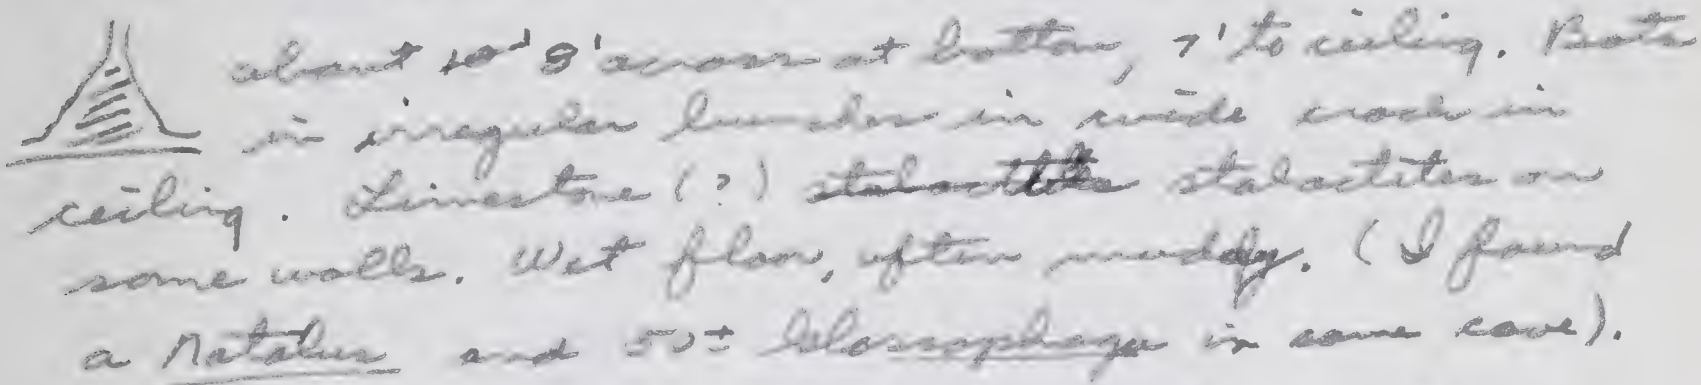 about 8' across at bottom, 7' to ceiling. Bats
in irregular bunches in wide crack in
ceiling. Limestone (?) stalactites stalactites on
some walls. Wet floor, often muddy. (I found
a Natalus and 50± Glossophaga in same cave).